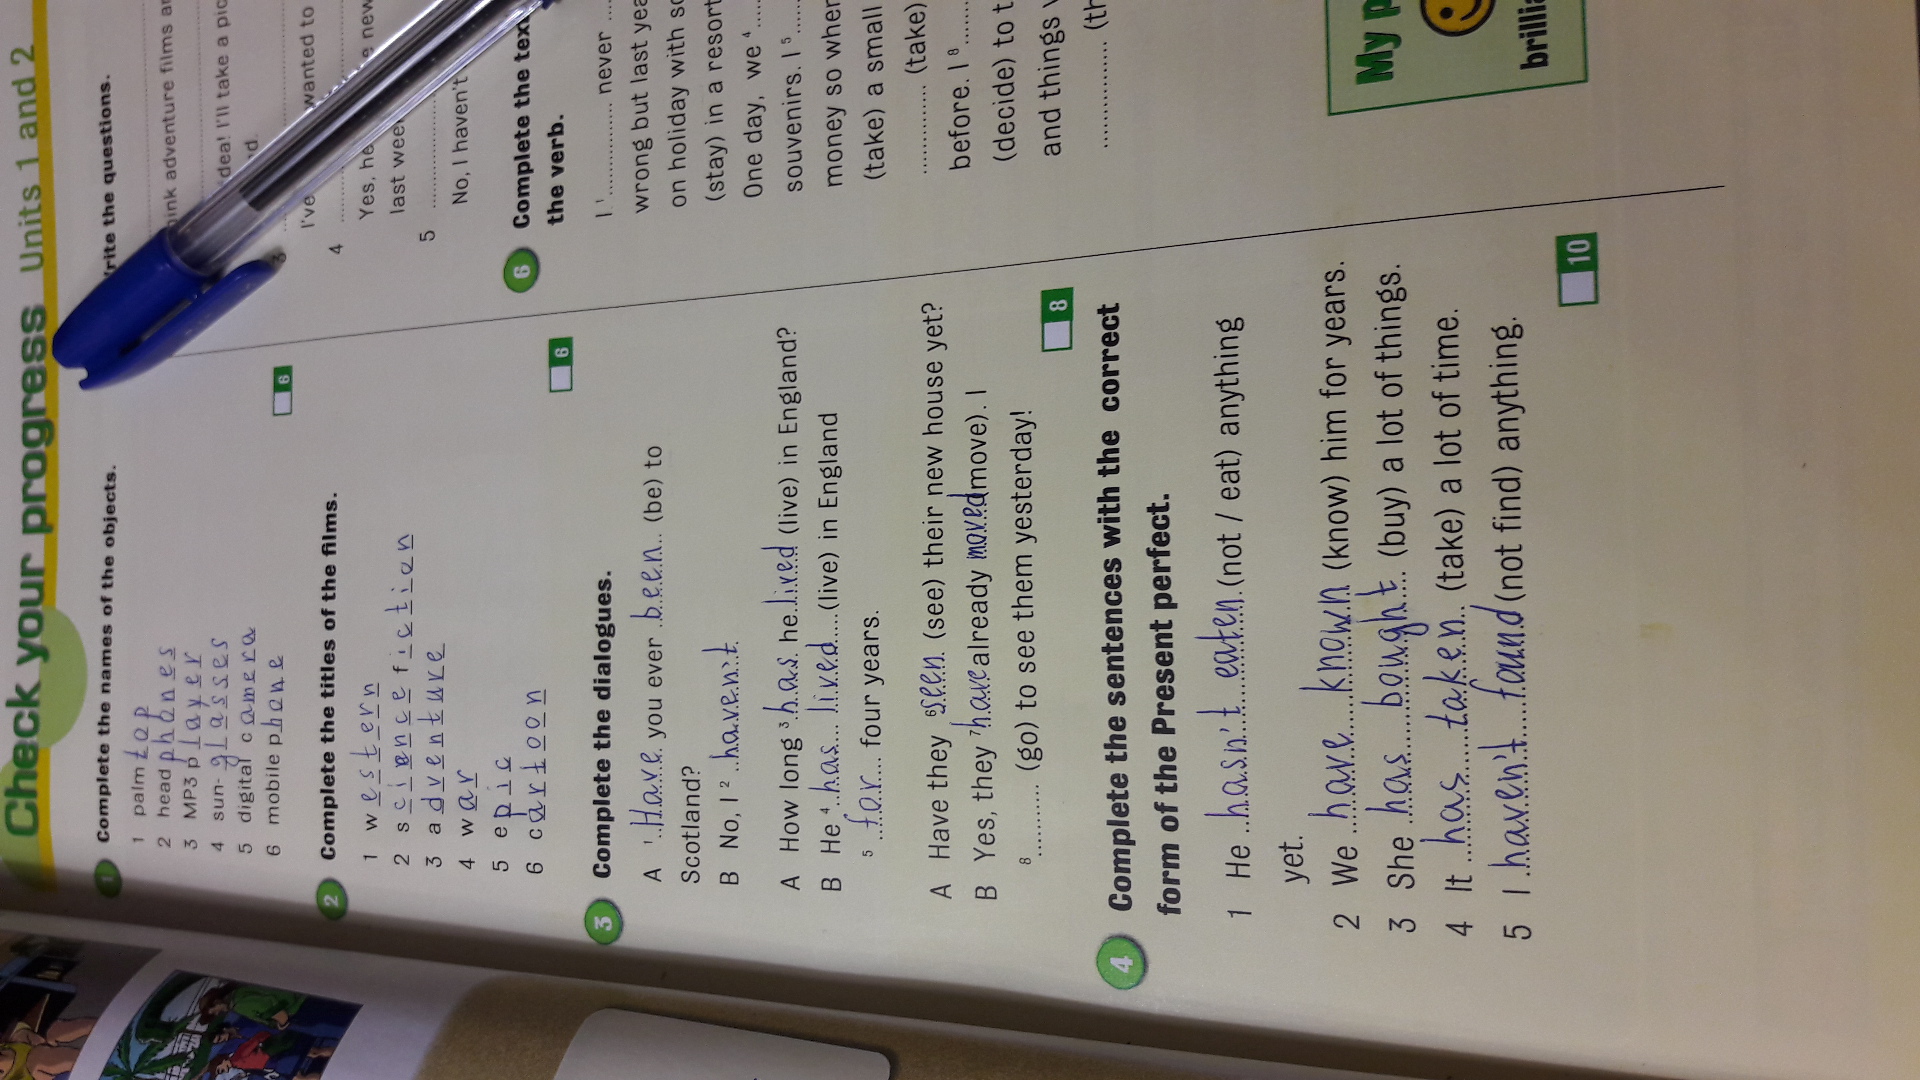 Check your progress Units 1 and 2
1 Complete the names of the objects.
1 palm top
2 head phones
3 MP3 player
4 sun- glasses
5 digital camera
6 mobile phone
6
2 Complete the titles of the films.
1 western
2 science fiction
3 adventure
4 war
5 epic
6 cartoon
6
3 Complete the dialogues.
A 1 Have you ever been (be) to
Scotland?
B No, I 2 haven't.
A How long 3 has he lived (live) in England?
B He 4 has lived (live) in England
5 for four years.
A Have they 6 seen (see) their new house yet?
B Yes, they 7 have already moved (move). I
8 ............ (go) to see them yesterday!
8
4 Complete the sentences with the correct
form of the Present perfect.
1 He hasn't eaten (not / eat) anything
yet.
2 We have known (know) him for years.
3 She has bought (buy) a lot of things.
4 It has taken (take) a lot of time.
5 I haven't found (not find) anything.
10
rite the questions.
ink adventure films
dea! I'll take a pic
3
I've wanted to
4
Yes, he new
last
5
No, I haven't
6 Complete the tex
the verb.
I 1 ............ never ...
wrong but last yea
on holiday with so
(stay) in a resort
One day, we 4 ....
souvenirs. I 5 .....
money so when
(take) a small
............ (take)
before. I 8 .......
(decide) to t
and things
.............. (th
My p
brillia